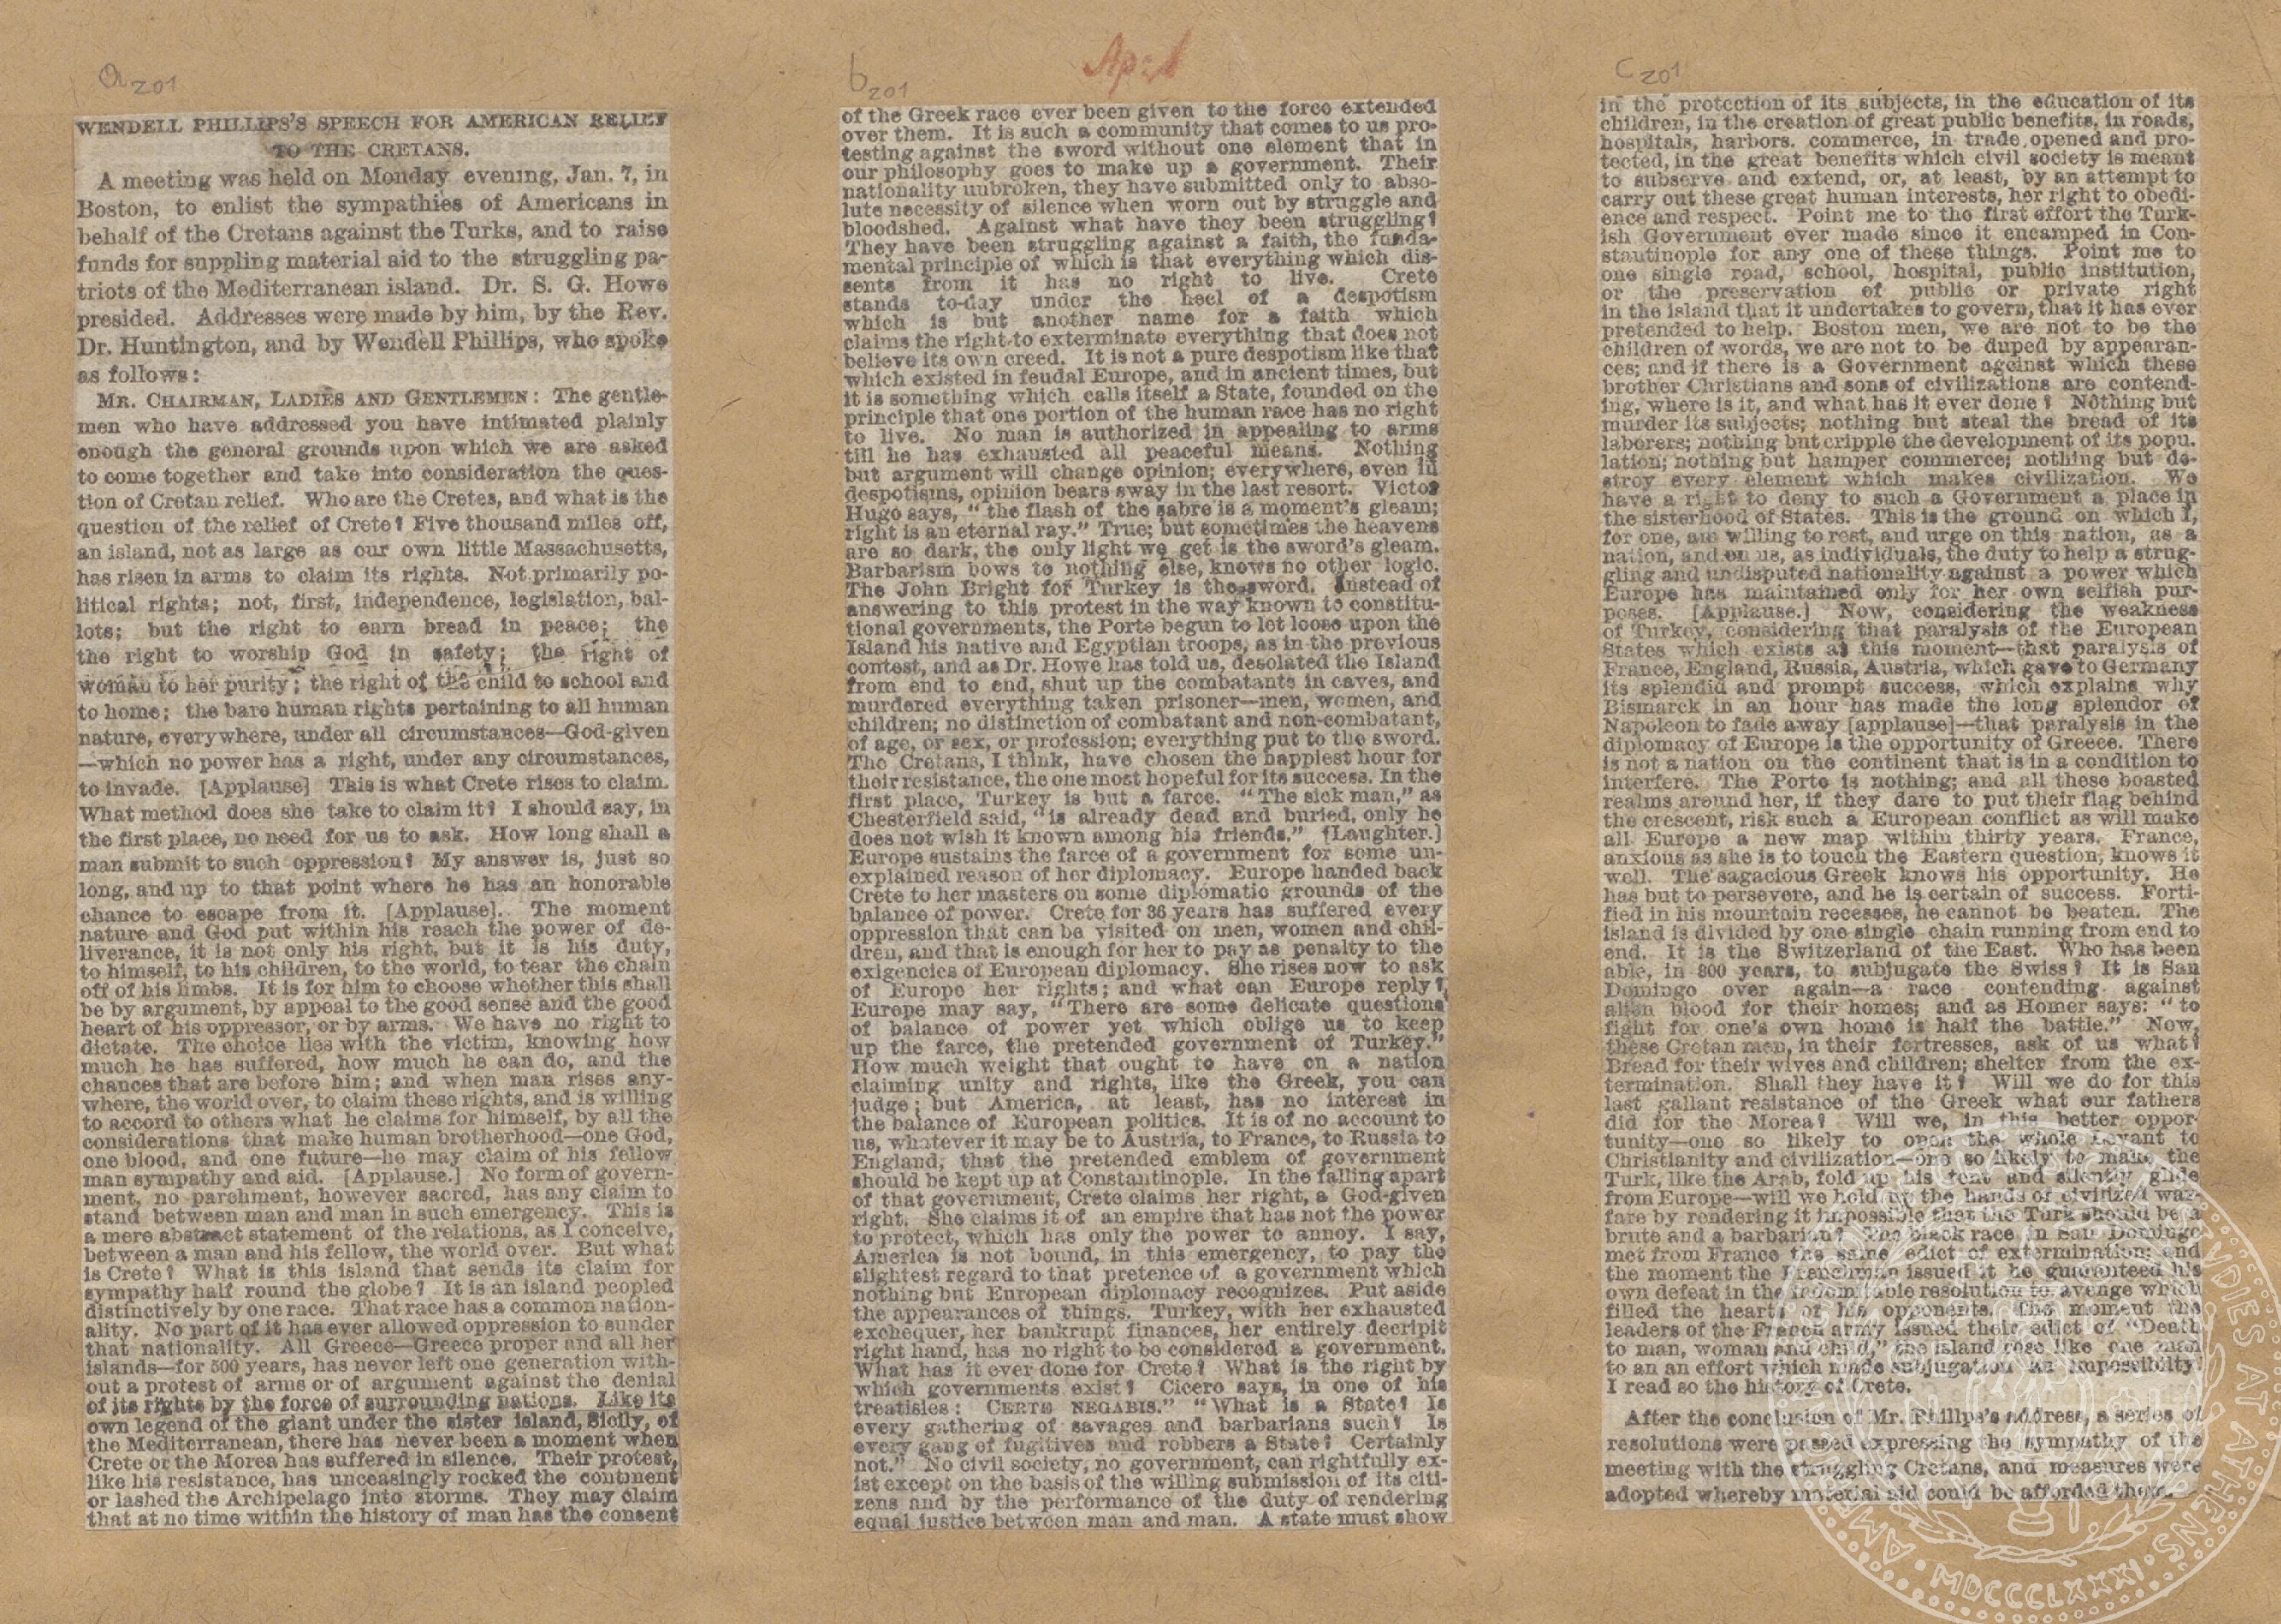 a 201
WENDELL PHILLIPS'S SPEECH FOR AMERICAN RELIEF
TO THE CRETANS.
A meeting was held on Monday evening, Jan. 7, in
Boston, to enlist the sympathies of Americans in
behalf of the Cretans against the Turks, and to raise
funds for suppling material aid to the struggling pa-
triots of the Mediterranean island. Dr. S. G. Howe
presided. Addresses were made by him, by the Rev.
Dr. Huntington, and by Wendell Phillips, who spoke
as follows:
MR. CHAIRMAN, LADIES AND GENTLEMEN: The gentle-
men who have addressed you have intimated plainly
enough the general grounds upon which we are asked
to come together and take into consideration the ques-
tion of Cretan relief. Who are the Cretes, and what is the
question of the relief of Crete? Five thousand miles off,
an island, not as large as our own little Massachusetts,
has risen in arms to claim its rights. Not primarily po-
litical rights; not, first, independence, legislation, bal-
lots; but the right to earn bread in peace; the
the right to worship God in safety; the right of
woman to her purity; the right of the child to school and
to home; the bare human rights pertaining to all human
nature, everywhere, under all circumstances—God-given
—which no power has a right, under any circumstances,
to invade. [Applause] This is what Crete rises to claim.
What method does she take to claim it? I should say, in
the first place, no need for us to ask. How long shall a
man submit to such oppression? My answer is, just so
long, and up to that point where he has an honorable
chance to escape from it. [Applause]. The moment
nature and God put within his reach the power of de-
liverance, it is not only his right, but it is his duty,
to himself, to his children, to the world, to tear the chain
off of his limbs. It is for him to choose whether this shall
be by argument, by appeal to the good sense and the good
heart of his oppressor, or by arms. We have no right to
dictate. The choice lies with the victim, knowing how
much he has suffered, how much he can do, and the
chances that are before him; and when man rises any-
where, the world over, to claim these rights, and is willing
to accord to others what he claims for himself, by all the
considerations that make human brotherhood—one God,
one blood, and one future—he may claim of his fellow
man sympathy and aid. [Applause.] No form of govern-
ment, no parchment, however sacred, has any claim to
stand between man and man in such emergency. This is
a mere abstract statement of the relations, as I conceive,
between a man and his fellow, the world over. But what
is Crete? What is this island that sends its claim for
sympathy half round the globe? It is an island peopled
distinctively by one race. That race has a common nation-
ality. No part of it has ever allowed oppression to sunder
that nationality. All Greece—Greece proper and all her
islands—for 500 years, has never left one generation with-
out a protest of arms or of argument against the denial
of its rights by the force of surrounding nations. Like its
own legend of the giant under the sister island, Sicily, of
the Mediterranean, there has never been a moment when
Crete or the Morea has suffered in silence. Their protest,
like his resistance, has unceasingly rocked the continent
or lashed the Archipelago into storms. They may claim
that at no time within the history of man has the consent
b 201
April
of the Greek race ever been given to the force extended
over them. It is such a community that comes to us pro-
testing against the sword without one element that in
our philosophy goes to make up a government. Their
nationality unbroken, they have submitted only to abso-
lute necessity of silence when worn out by struggle and
bloodshed. Against what have they been struggling?
They have been struggling against a faith, the funda-
mental principle of which is that everything which dis-
sents from it has no right to live. Crete
stands to-day under the heel of a despotism
which is but another name for a faith which
claims the right to exterminate everything that does not
believe its own creed. It is not a pure despotism like that
which existed in feudal Europe, and in ancient times, but
it is something which calls itself a State, founded on the
principle that one portion of the human race has no right
to live. No man is authorized in appealing to arms
till he has exhausted all peaceful means. Nothing
but argument will change opinion; everywhere, even in
despotisms, opinion bears sway in the last resort. Victor
Hugo says, "the flash of the sabre is a moment's gleam;
right is an eternal ray." True; but sometimes the heavens
are so dark, the only light we get is the sword's gleam.
Barbarism bows to nothing else, knows no other logic.
The John Bright for Turkey is the sword. Instead of
answering to this protest in the way known to constitu-
tional governments, the Porte begun to let loose upon the
Island his native and Egyptian troops, as in the previous
contest, and as Dr. Howe has told us, desolated the Island
from end to end, shut up the combatants in caves, and
murdered everything taken prisoner—men, women, and
children; no distinction of combatant and non-combatant,
of age, or sex, or profession; everything put to the sword.
The Cretans, I think, have chosen the happiest hour for
their resistance, the one most hopeful for its success. In the
first place, Turkey is but a farce. "The sick man," as
Chesterfield said, "is already dead and buried, only he
does not wish it known among his friends." [Laughter.]
Europe sustains the farce of a government for some un-
explained reason of her diplomacy. Europe handed back
Crete to her masters on some diplomatic grounds of the
balance of power. Crete for 36 years has suffered every
oppression that can be visited on men, women and chil-
dren, and that is enough for her to pay as penalty to the
exigencies of European diplomacy. She rises now to ask
of Europe her rights; and what can Europe reply?
Europe may say, "There are some delicate questions
of balance of power yet which oblige us to keep
up the farce, the pretended government of Turkey."
How much weight that ought to have on a nation
claiming unity and rights, like the Greek, you can
judge; but America, at least, has no interest in
the balance of European politics. It is of no account to
us, whatever it may be to Austria, to France, to Russia to
England, that the pretended emblem of government
should be kept up at Constantinople. In the falling apart
of that government, Crete claims her right, a God-given
right. She claims it of an empire that has not the power
to protect, which has only the power to annoy. I say,
America is not bound, in this emergency, to pay the
slightest regard to that pretence of a government which
nothing but European diplomacy recognizes. Put aside
the appearances of things. Turkey, with her exhausted
exchequer, her bankrupt finances, her entirely decripit
right hand, has no right to be considered a government.
What has it ever done for Crete? What is the right by
which governments exist? Cicero says, in one of his
treatisies: CERTE NEGABIS." "What is a State? Is
every gathering of savages and barbarians such? Is
every gang of fugitives and robbers a State? Certainly
not." No civil society, no government, can rightfully ex-
ist except on the basis of the willing submission of its citi-
zens and by the performance of the duty of rendering
equal justice between man and man. A state must show
c 201
in the protection of its subjects, in the education of its
children, in the creation of great public benefits, in roads,
hospitals, harbors. commerce, in trade opened and pro-
tected, in the great benefits which civil society is meant
to subserve and extend, or, at least, by an attempt to
carry out these great human interests, her right to obedi-
ence and respect. Point me to the first effort the Turk-
ish Government ever made since it encamped in Con-
stautinople for any one of these things. Point me to
one single road, school, hospital, public institution,
or the preservation of public or private right
in the island that it undertakes to govern, that it has ever
pretended to help. Boston men, we are not to be the
children of words, we are not to be duped by appearan-
ces; and if there is a Government against which these
brother Christians and sons of civilizations are contend-
ing, where is it, and what has it ever done? Nothing but
murder its subjects; nothing but steal the bread of its
laborers; nothing but cripple the development of its popu.
lation; nothing but hamper commerce; nothing but de-
stroy every element which makes civilization. We
have a right to deny to such a Government a place in
the sisterhood of States. This is the ground on which I,
for one, am willing to rest, and urge on this nation, as a
nation, and on us, as individuals, the duty to help a strug-
gling and undisputed nationality against a power which
Europe has maintained only for her own selfish pur-
poses. [Applause.] Now, considering the weakness
of Turkey, considering that paralysis of the European
States which exists at this moment—that paralysis of
France, England, Russia, Austria, which gave to Germany
its splendid and prompt success, which explains why
Bismarck in an hour has made the long splendor of
Napoleon to fade away [applause]—that paralysis in the
diplomacy of Europe is the opportunity of Greece. There
is not a nation on the continent that is in a condition to
interfere. The Porte is nothing; and all these boasted
realms around her, if they dare to put their flag behind
the crescent, risk such a European conflict as will make
all Europe a new map within thirty years. France,
anxious as she is to touch the Eastern question, knows it
well. The sagacious Greek knows his opportunity. He
has but to persevere, and he is certain of success. Forti-
fied in his mountain recesses, he cannot be beaten. The
island is divided by one single chain running from end to
end. It is the Switzerland of the East. Who has been
able, in 800 years, to subjugate the Swiss? It is San
Domingo over again—a race contending against
alien blood for their homes; and as Homer says: "to
fight for one's own home is half the battle." Now,
these Cretan men, in their fortresses, ask of us what?
Bread for their wives and children; shelter from the ex-
termination. Shall they have it? Will we do for this
last gallant resistance of the Greek what our fathers
did for the Morea? Will we, in this better oppor-
tunity—one so likely to open the whole Levant to
Christianity and civilization—one so likely to make the
Turk, like the Arab, fold up his tent and silently glide
from Europe—will we hold up the hands of civilized war-
fare by rendering it impossible that the Turk should be a
brute and a barbarian? The black race in San Domingo
met from France the same edict of extermination; and
the moment the Frenchman issued it he guaranteed his
own defeat in the indomitable resolution to avenge which
filled the hearts of his opponents. The moment the
leaders of the French army issued their edict of "Death
to man, woman and child," the island rose like one man
to an an effort which made subjugation an impossibilty.
I read so the history of Crete.
After the conclusion of Mr. Phillps's address, a series of
resolutions were passed expressing the sympathy of the
meeting with the struggling Cretans, and measures were
adopted whereby material aid could be afforded them.
MDCCCLXXXI